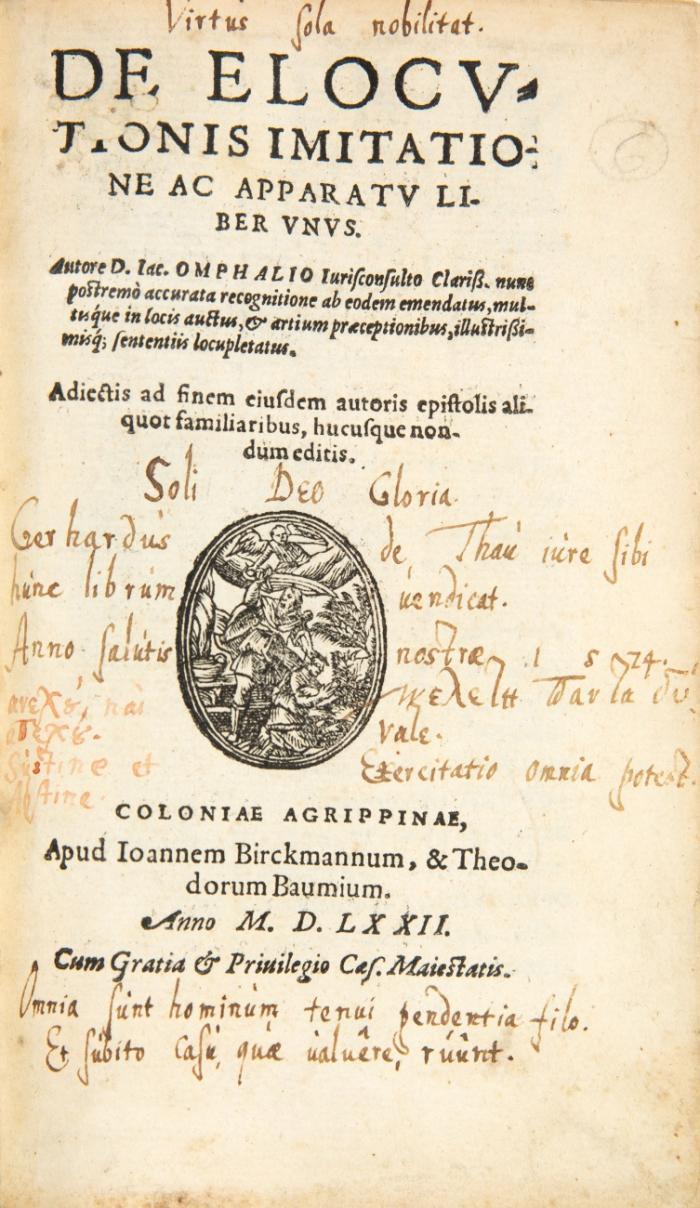 Virtus sola nobilitat.
DE ELOCV-
TIONIS IMITATIO-
NE AC APPARATV LI-
BER VNVS.
Autore D. Iac. OMPHALIO Iurisconsulto Clariß. nunc
postremò accurata recognitione ab eodem emendatus, mul-
tisque in locis auctus, & artium præceptionibus, illustrißi-
misq; sententiis locupletatus.
Adiectis ad finem eiusdem autoris epistolis ali-
quot familiaribus, hucusque non-
dum editis.
Soli Deo Gloria.
Gerhardus de Thau iure sibi
hunc librum uendicat.
Anno salutis nostræ 1574.
ανεχȣ, και
απεχȣ.
Sustine et
Abstine.
Vale.
Exercitatio omnia potest.
COLONIAE AGRIPPINAE,
Apud Ioannem Birckmannum, & Theo-
dorum Baumium.
Anno M. D. LXXII.
Cum Gratia & Priuilegio Cæs. Maiestatis.
Omnia sunt hominum tenui pendentia filo.
Et subito casu, quæ ualuêre, ruunt.